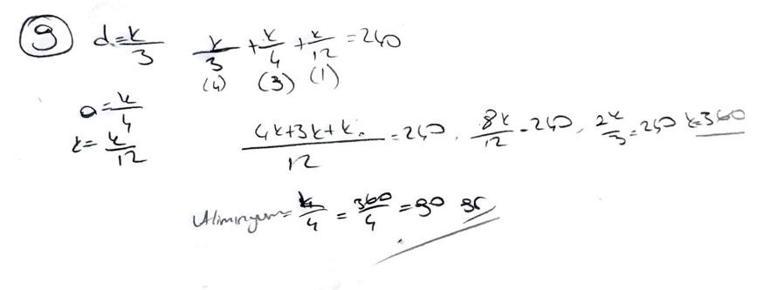 9 d=k/3 k/3 + k/4 + k/12 = 240
(4) (3) (1)
a=k/4
k/12
4k+3k+k/12 = 240, 8k/12 = 240, 2k/3 = 240 k=360
Aliminyum = k/4 = 360/4 = 90 gr